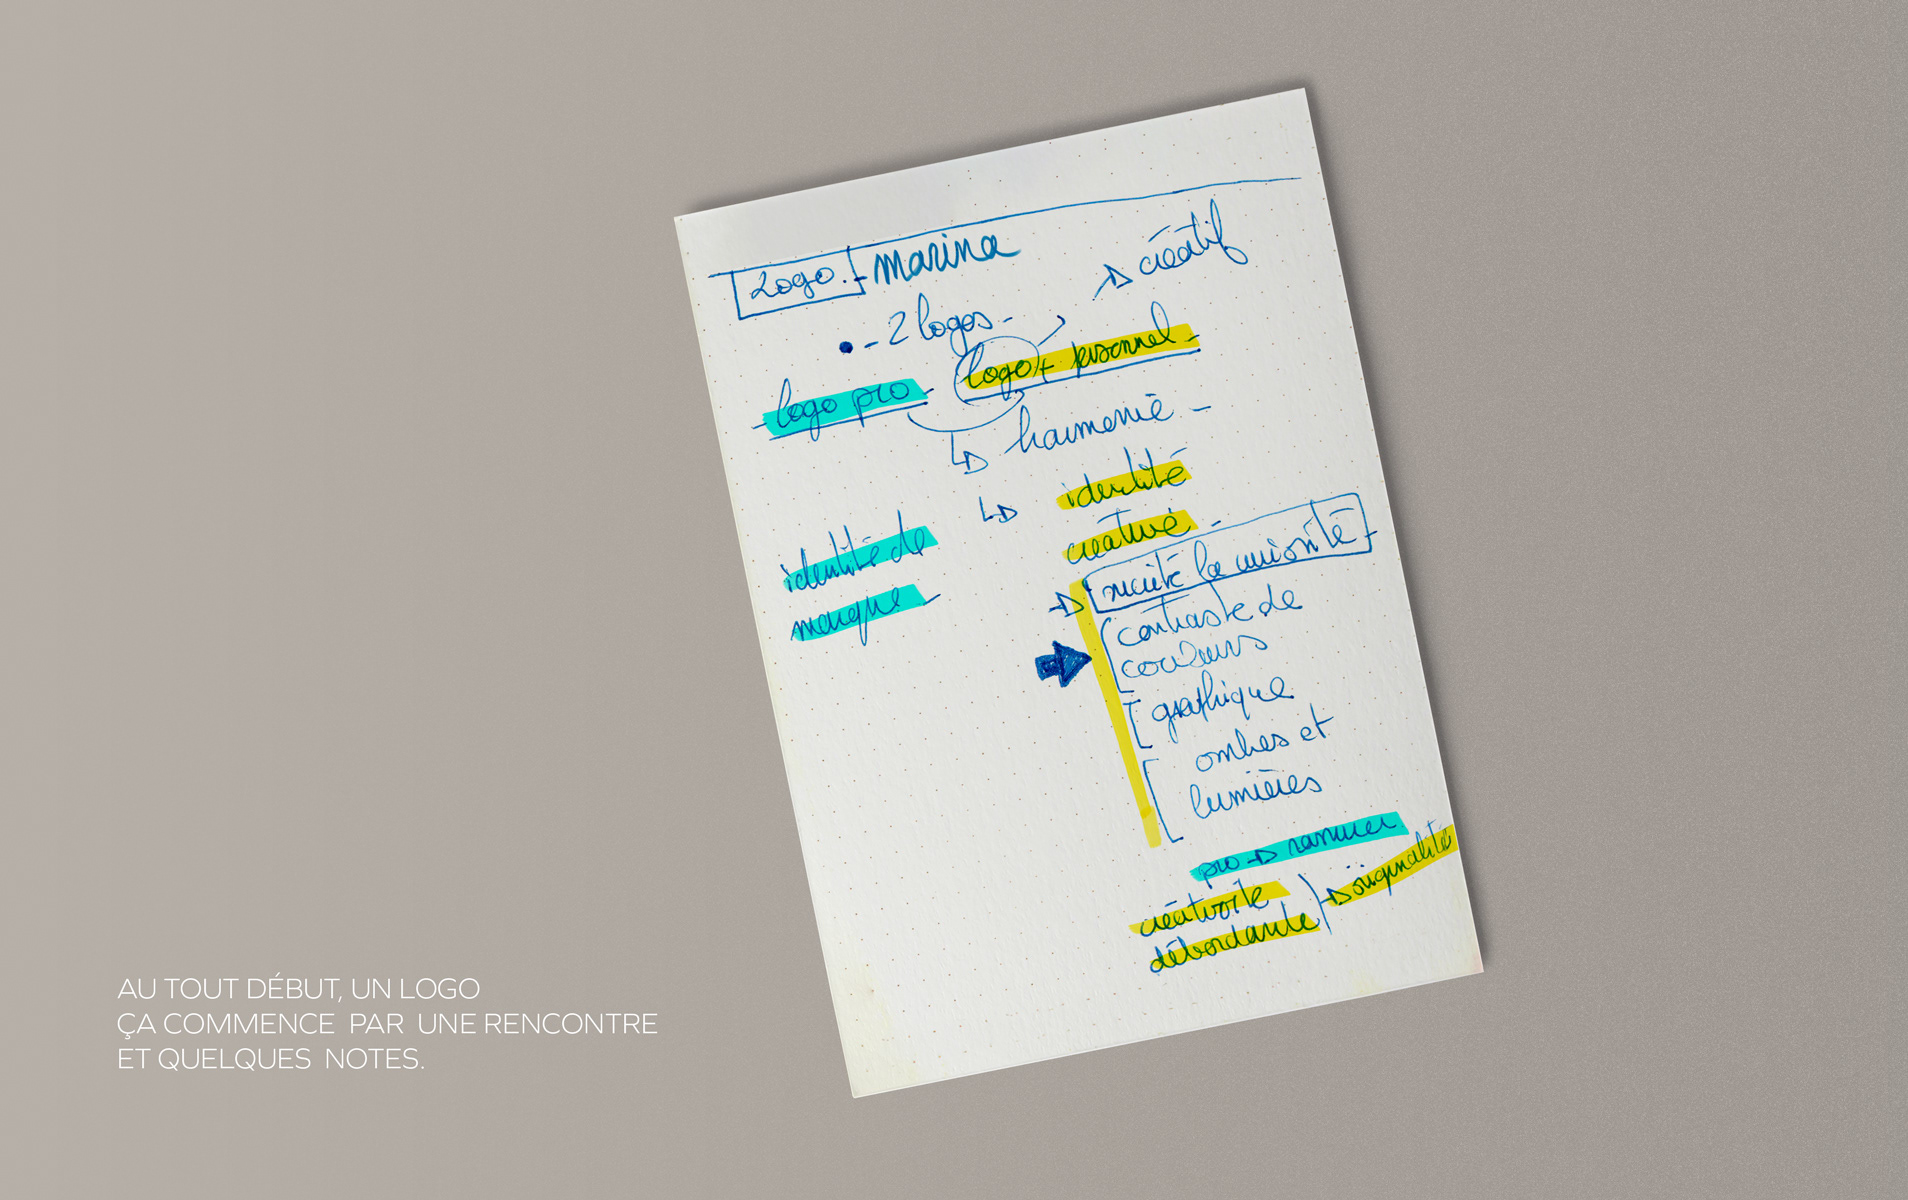 Logo. marina
créatif
- 2 logos -
logo + personnel -
- logo pro -
harmonie -
identité
créative -
identité de
marque -
suscité la curiosité -
contraste de
couleurs
graphique
ombres et
lumières
pro
originalité
créativité
débordante
AU TOUT DÉBUT, UN LOGO
ÇA COMMENCE PAR UNE RENCONTRE
ET QUELQUES NOTES.